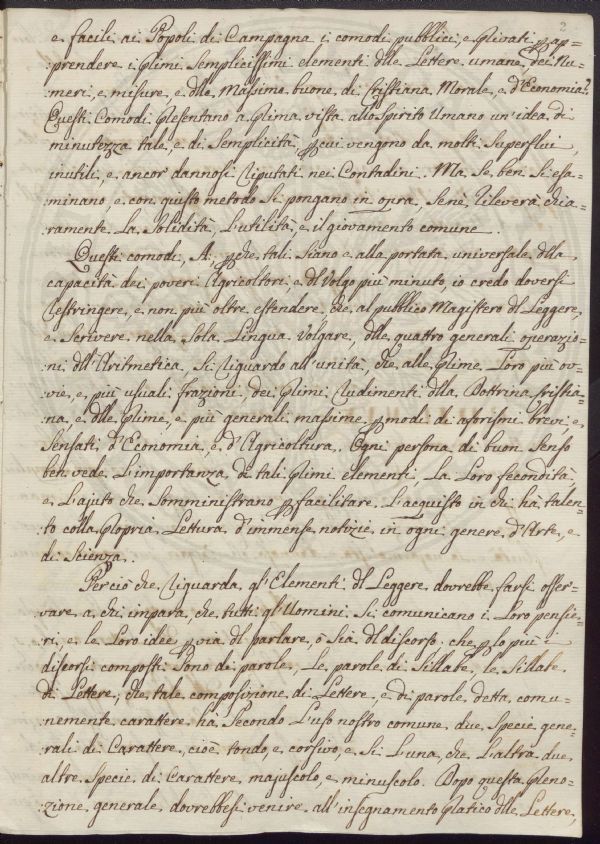 2
e facili ai Popoli di Campagna i comodi pubblici, e Privati p ap=
:prendere i Primi Semplicissimi elementi dlle Lettere umane, dei Nu=
meri, e misure, e dlle Massime buone di Cristiana Morale, e d'Economia.
Questi Comodi Presentano a Prima vista allo Spirito Umano un'idea di
minutezza tale, e di Semplicità, p cui vengono da molti Superflui,
inutili, e ancor dannosi Riputati nei Contadini. Ma Se ben Si esa=
:minano, e con giusto metodo Si pongano in opra, Senè Rileverà chia=
:ramente La Solidità, L'utilità, e il giovamento comune.
Questi comodi, A. pche tali Siano e alla portata universale dlla
capacità dei poveri Agricoltori, e dl Volgo più minuto, io credo doversi
Restringere, e non più oltre estendere, che al pubblico Magistero dl Leggere,
e Scrivere nella Sola Lingua Volgare, dlle quattro generali operazio=
ni dll'Aritmetica, Si Riguardo all'unità, che alle Prime Loro più ov=
vie, e più usuali Frazioni, dei Primi Rudimenti dlla Dottrina Cristia=
na, e dlle Prime, e più generali massime p modi di aforismi brevi, e
Sensati d'Economia, e d'Agricoltura. Ogni persona di buon Senso
ben vede L'importanza di tali Primi elementi, La Loro fecondità,
e L'ajuto che Somministrano p facilitare L'acquisto in chi hà talen=
to colla Propria Lettura d'immense notizie in ogni genere d'Arte, e
di Scienza.
Perciò che Riguarda gl'Elementi dl Leggere dovrebbe farsi osser=
vare a chi impara, che tutti gl'Uomini Si comunicano i Loro pensie=
ri, e le Loro idee p via dl parlare, ò Sia dl discorso: che p lo più i
discorsi composti Sono di parole, Le parole di Sillabe, le Sillabe
di Lettere, che tale composizione di Lettere e di parole detta comu=
:nemente carattere hà Secondo L'uso nostro comune due Specie gene=
:rali di Carattere, cioè tondo, e corsivo, e Si L'una, che L'altra due
altre Specie di Carattere, majuscolo, e minuscolo. Dopo questa Preno=
:zione generale dovrebbesi venire all'insegnamento Pratico dlle Lettere,